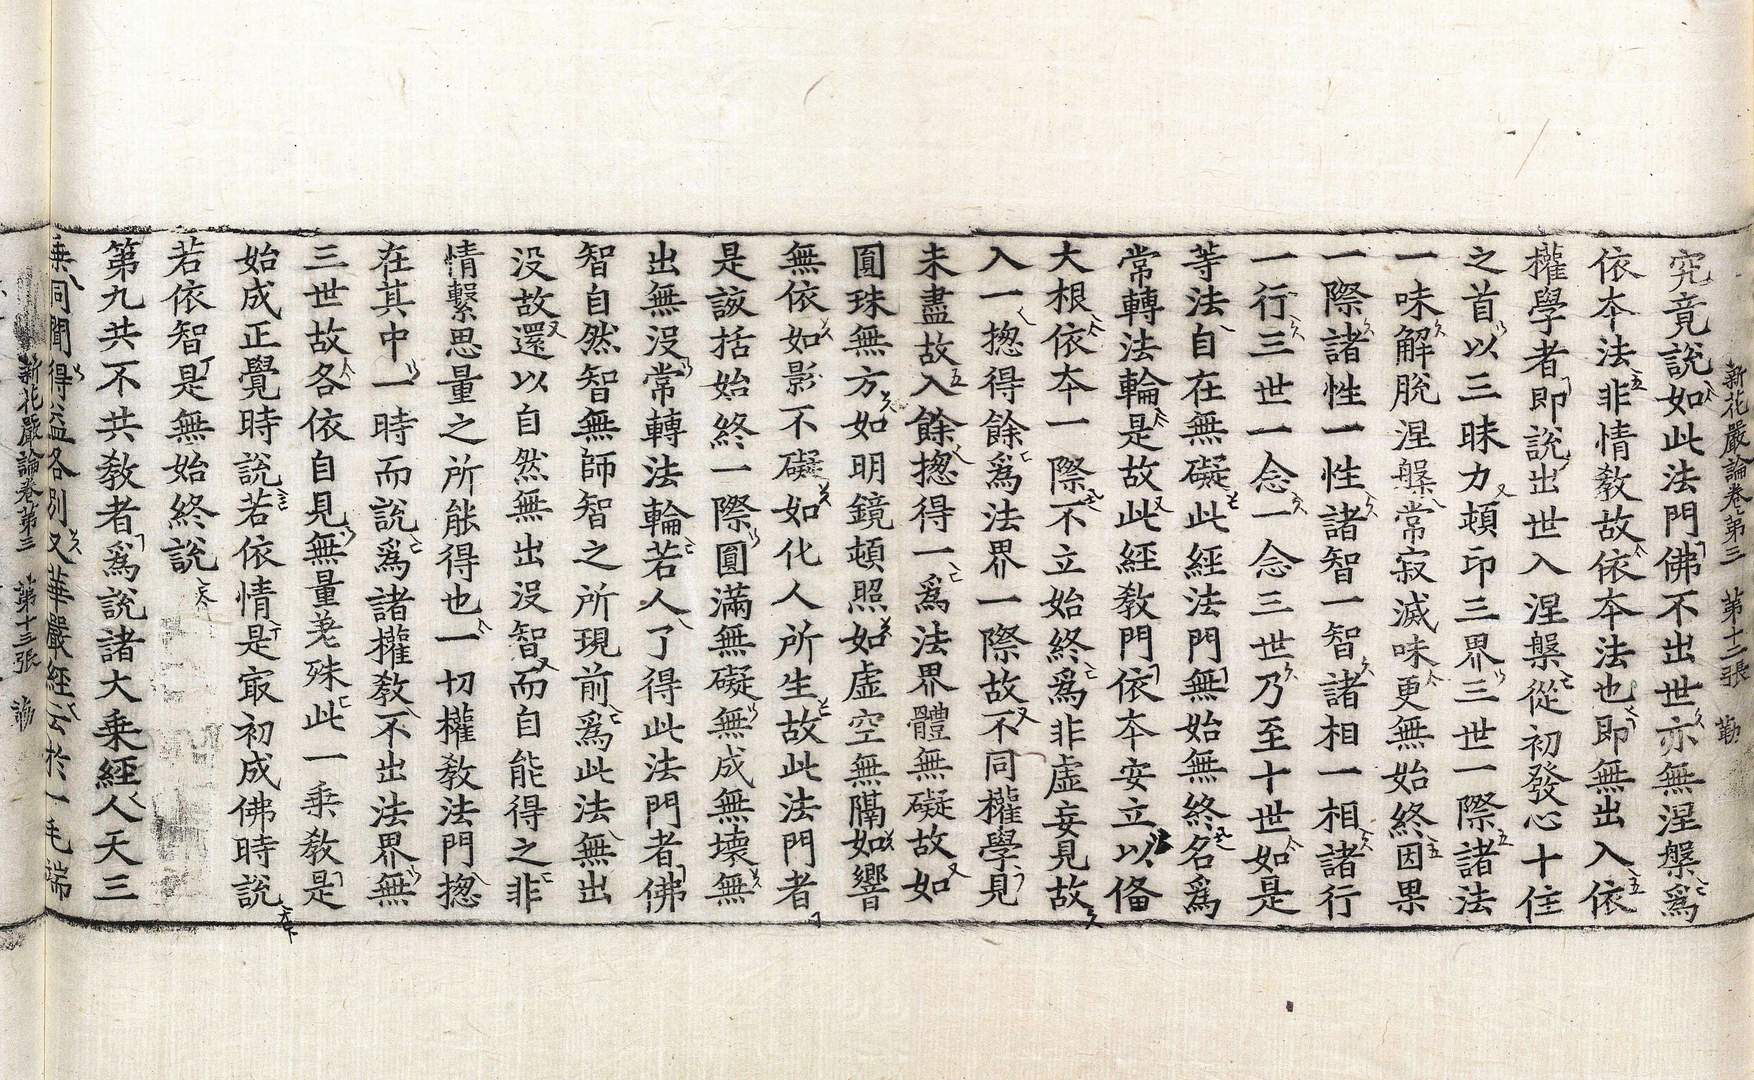 新花嚴論卷第三 第十二張 勤
究竟說如此法門佛不出世亦無涅槃爲
依夲法非情敎故依夲法也即無出入依
權學者即說出世入涅槃從初發心十住
之首以三昧力頓印三界三世一際諸法
一味解脫涅槃常寂滅味更無始終因果
一際諸性一性諸智一智諸相一相諸行
一行三世一念一念三世乃至十世如是
等法自在無礙此經法門無始無終名爲
常轉法輪是故此經敎門依夲安立以俻
大根依夲一際不立始終爲非虛妄見故
入一揔得餘爲法界一際故不同權學見
未盡故入餘揔得一爲法界體無礙故如
圓珠無方如明鏡頓照如虛空無隔如響
無依如影不礙如化人所生故此法門者
是該括始終一際圓滿無礙無成無壞無
出無没常轉法輪若人了得此法門者佛
智自然智無師智之所現前爲此法無出
没故還以自然無出没智而自能得之非
情繫思量之所能得也一切權敎法門揔
在其中一時而說爲諸權敎不出法界無
三世故各依自見無量差殊此一乘敎是
始成正覺時說若依情是㝡初成佛時說
若依智是無始終說
第九共不共敎者爲說諸大乘經人天三
新花嚴論卷第三 第十三張 勤
乘同聞得益各別又華嚴經云於一毛端